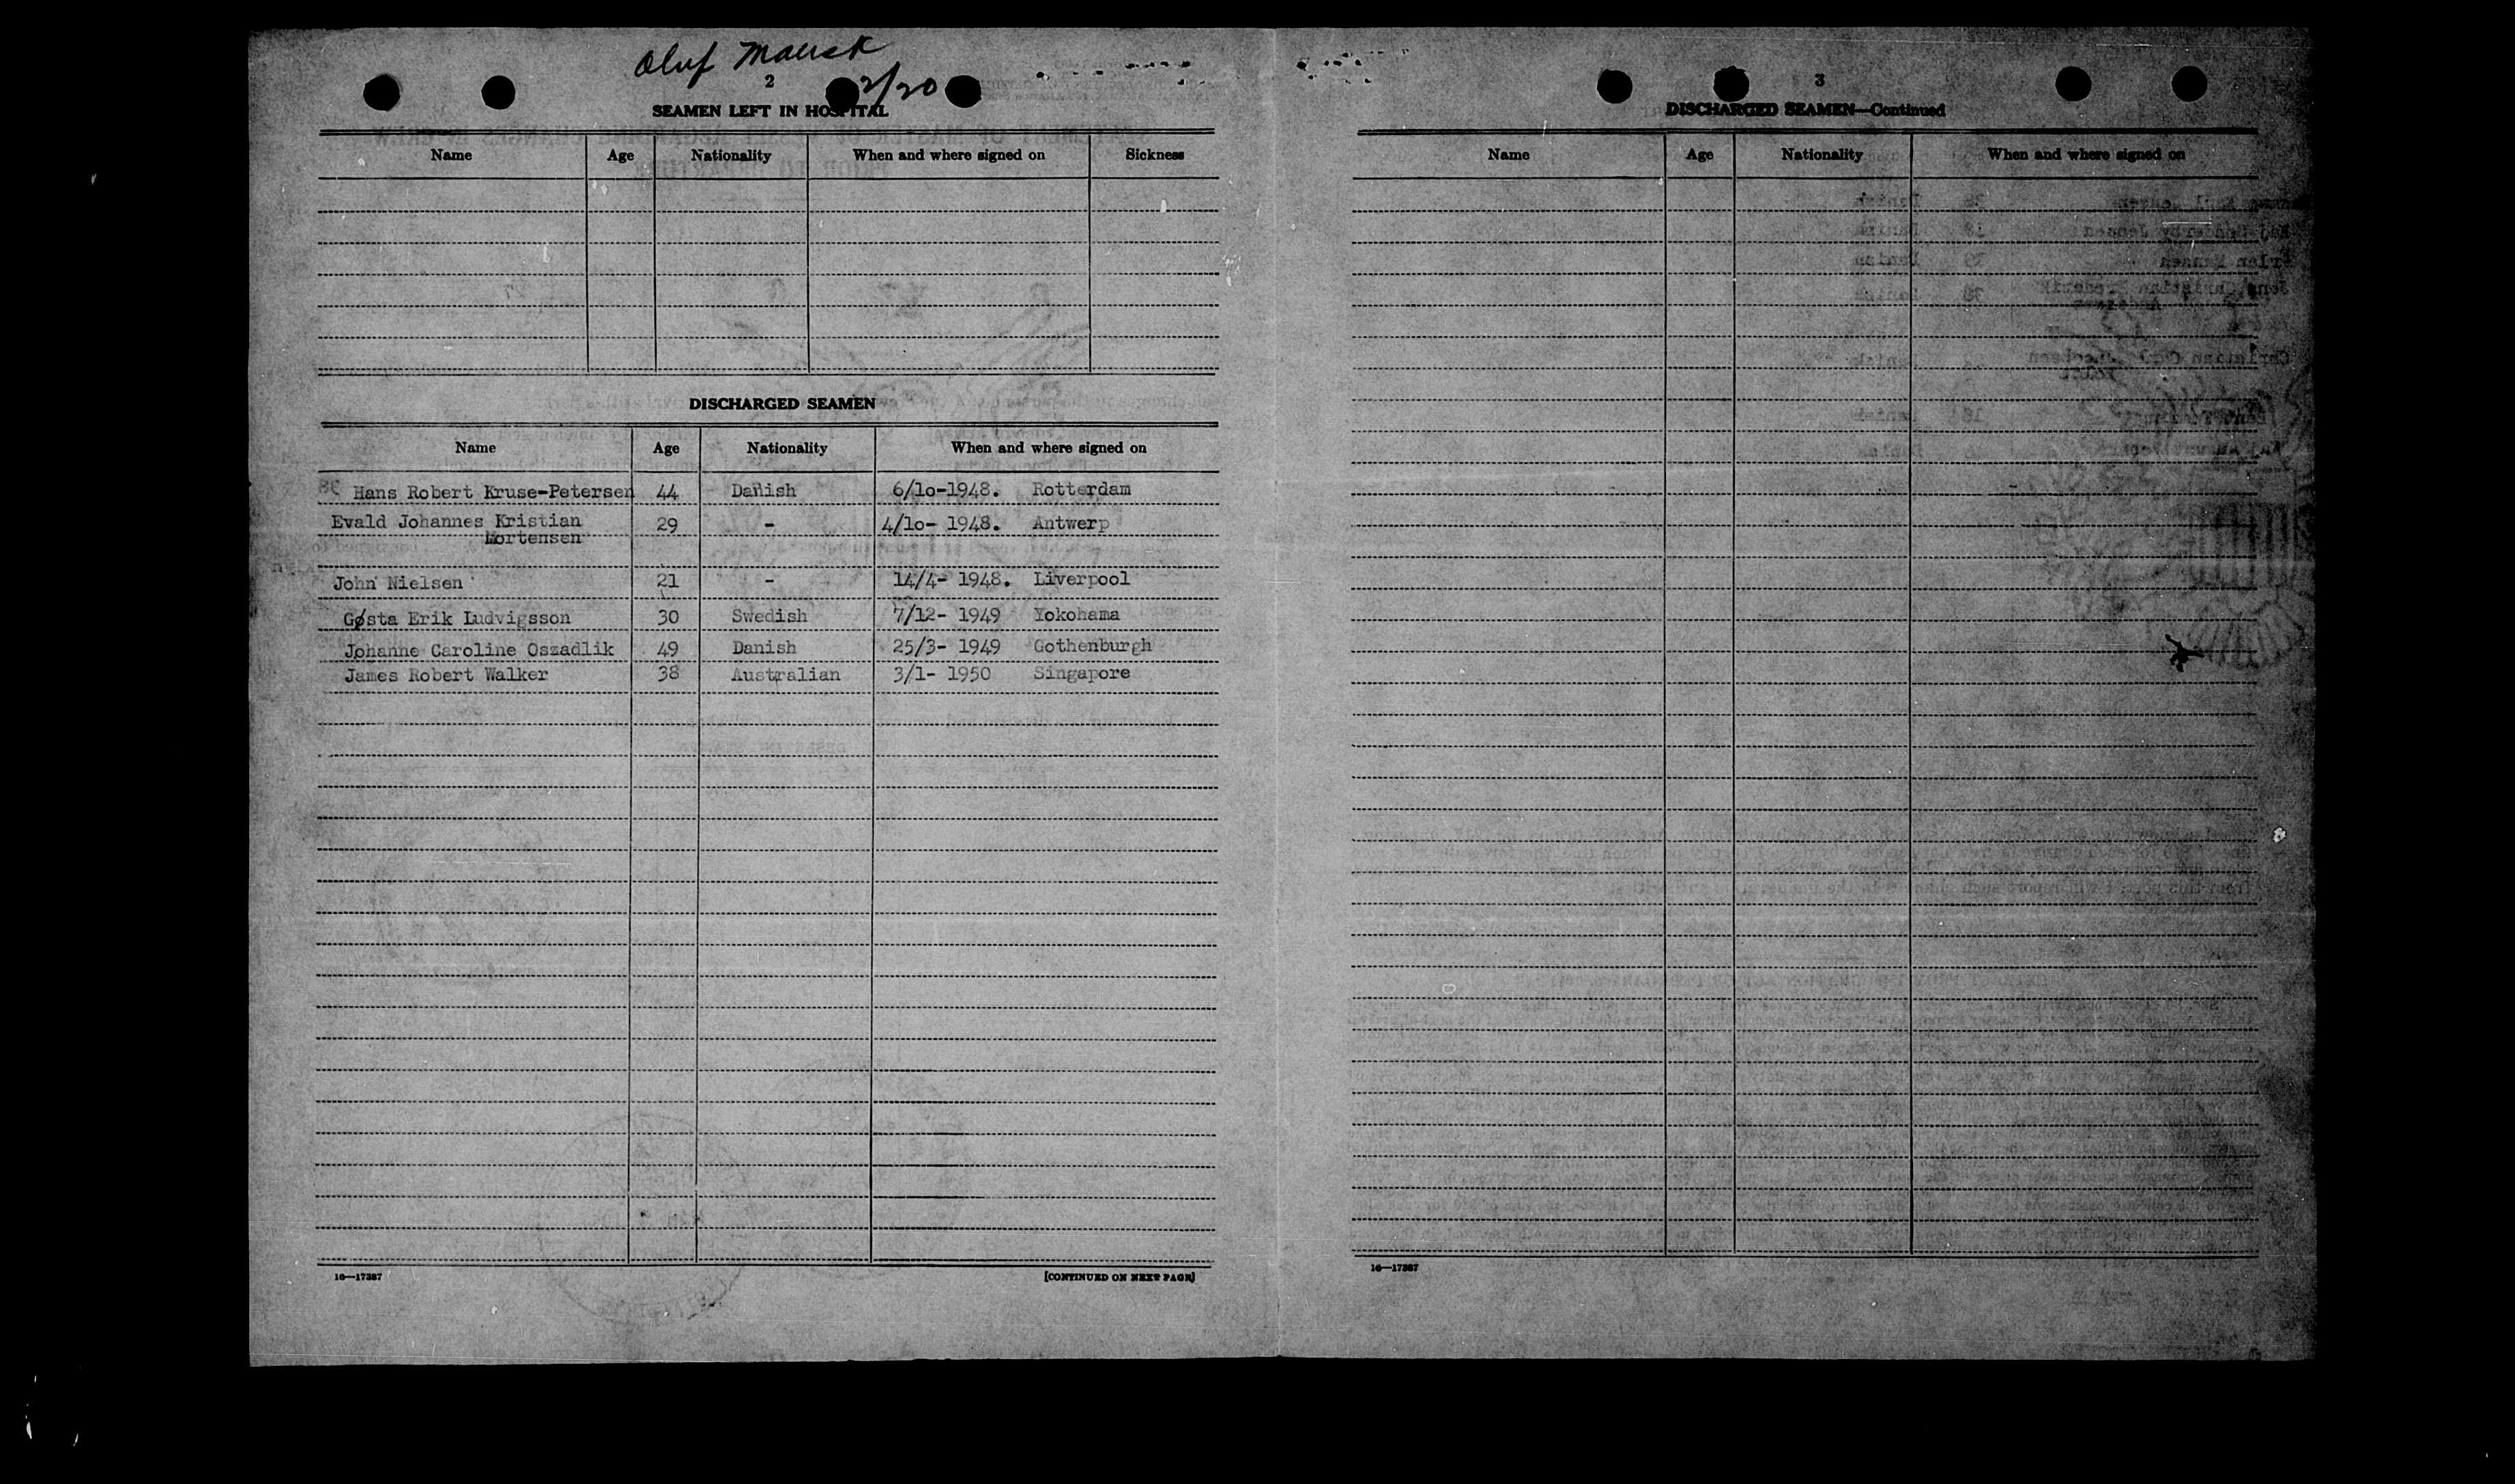 Oluf Maersk
2
2/20
SEAMEN LEFT IN HOSPITAL
Name Age Nationality When and where signed on Sickness
DISCHARGED SEAMEN
Name Age Nationality When and where signed on
Hans Robert Kruse-Petersen 44 Danish 6/10-1948. Rotterdam
Evald Johannes Kristian 29 - 4/10- 1948. Antwerp
Mortensen
John Nielsen 21 - 14/4- 1948. Liverpool
Gøsta Erik Ludvigsson 30 Swedish 7/12- 1949 Yokohama
Johanne Caroline Oszadlik 49 Danish 25/3- 1949 Gothenburgh
James Robert Walker 38 Australian 3/1- 1950 Singapore
16—17387
[CONTINUED ON NEXT PAGE]
3
DISCHARGED SEAMEN—Continued
Name Age Nationality When and where signed on
16—17387